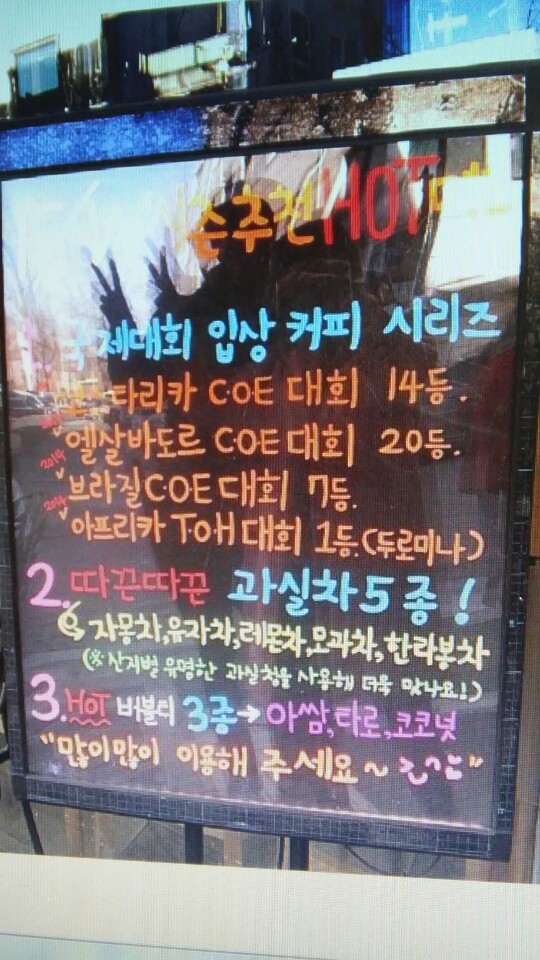 추천 HOT
국제대회 입상 커피 시리즈
타리카 C·O·E 대회 14등.
2014 엘살바도르 C·O·E 대회 20등.
2014 브라질 C·O·E 대회 7등.
아프리카 T·O·H 대회 1등.(두로미나)
2. 따끈따끈 과실차 5종!
자몽차,유자차,레몬차,모과차,한라봉차
(※ 산지별 유명한 과실청을 사용해 더욱 맛나요!)
3. HOT 버블티 3종→아쌈,타로,코코넛
"많이많이 이용해 주세요~ "